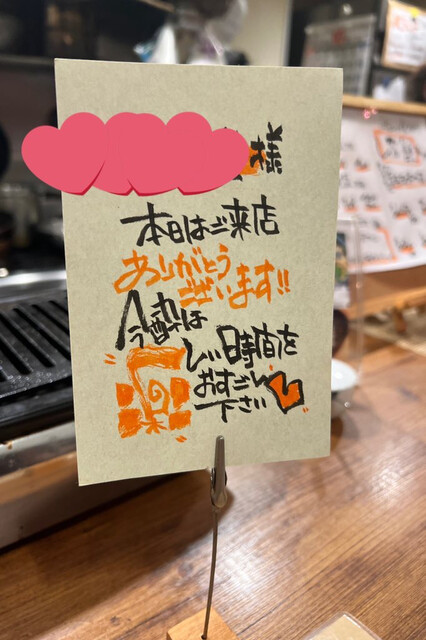 様
本日はご来店
ありがとう
ございます!!
今酔は
楽しい時間を
おすごし
下さい